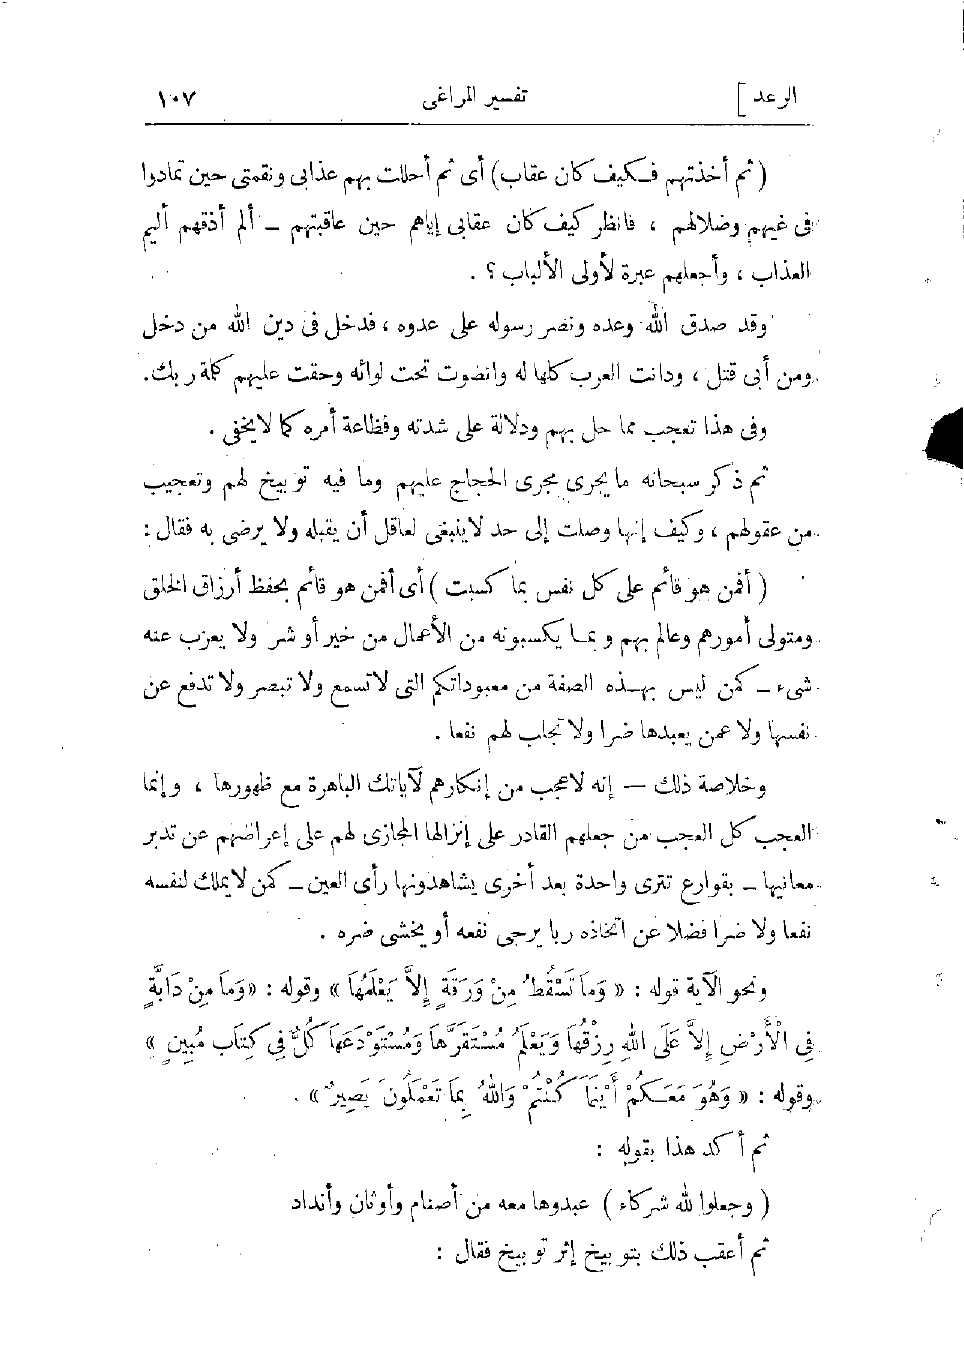 الرعد ]
تفسير المراغى
١٠٧
( ثم أخذتهم فكيف كان عقاب ) أى ثم أحللت بهم عذابى ونقمتى حين تمادوا
فى غيهم وضلالهم ، فانظر كيف كان عقابى إياهم حين عاقبتهم – ألم أذقهم أليم
العذاب ، وأجعلهم عبرة لأولى الألباب ؟ .
وقد صدق الله وعده ونصر رسوله على عدوه ، فدخل فى دين الله من دخل
ومن أبى قتل ، ودانت العرب كلها له وانضوت تحت لوائه وحقت عليهم كلمة ربك .
وفى هذا تعجب مما حل بهم ودلالة على شدته وفظاعة أمره كما لا يخفى .
ثم ذكر سبحانه ما يجرى مجرى الحجاج عليهم وما فيه توبيخ لهم وتعجيب
من عقولهم ، وكيف إنها وصلت إلى حد لا ينبغى لعاقل أن يقبله ولا يرضى به فقال :
( أفمن هو قائم على كل نفس بما كسبت ) أى أفمن هو قائم بحفظ أرزاق الخلق
ومتولى أمورهم وعالم بهم وبما يكسبونه من الأعمال من خير أو شر ولا يعزب عنه
شىء – كمن ليس بهذه الصفة من معبوداتكم التى لا تسمع ولا تبصر ولا تدفع عن
نفسها ولا عمن يعبدها ضرا ولا تجلب لهم نفعا .
وخلاصة ذلك – إنه لا عجب من إنكارهم لآياتك الباهرة مع ظهورها ، وإنما
العجب كل العجب من جعلهم القادر على إنزالها المجازى لهم على إعراضهم عن تدبر
معانيها – بقوارع تترى واحدة بعد أخرى يشاهدونها رأى العين – كمن لا يملك لنفسه
نفعا ولا ضرا فضلا عن اتخاذه ربا يرجى نفعه أو يخشى ضره .
ونحو الآية قوله : « وَمَا تَسْقُطُ مِنْ وَرَقَةٍ إِلاَّ يَعْلَمُهَا » وقوله : « وَمَا مِنْ دَابَّةٍ
فِى الْأَرْضِ إِلاَّ عَلَى اللهِ رِزْقُهَا وَيَعْلَمُ مُسْتَقَرَّهَا وَمُسْتَوْدَعَهَا كُلٌّ فِى كِتَابٍ مُبِينٍ »
وقوله : « وَهُوَ مَعَكُمْ أَيْنَمَا كُنْتُمْ وَاللهُ بِمَا تَعْمَلُونَ بَصِيرٌ » .
ثم أكد هذا بقوله :
( وجعلوا لله شركاء ) عبدوها معه من أصنام وأوثان وأنداد
ثم أعقب ذلك بتوبيخ إثر توبيخ فقال :